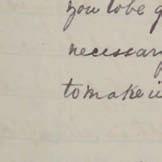 you to be g
necessary
to make i